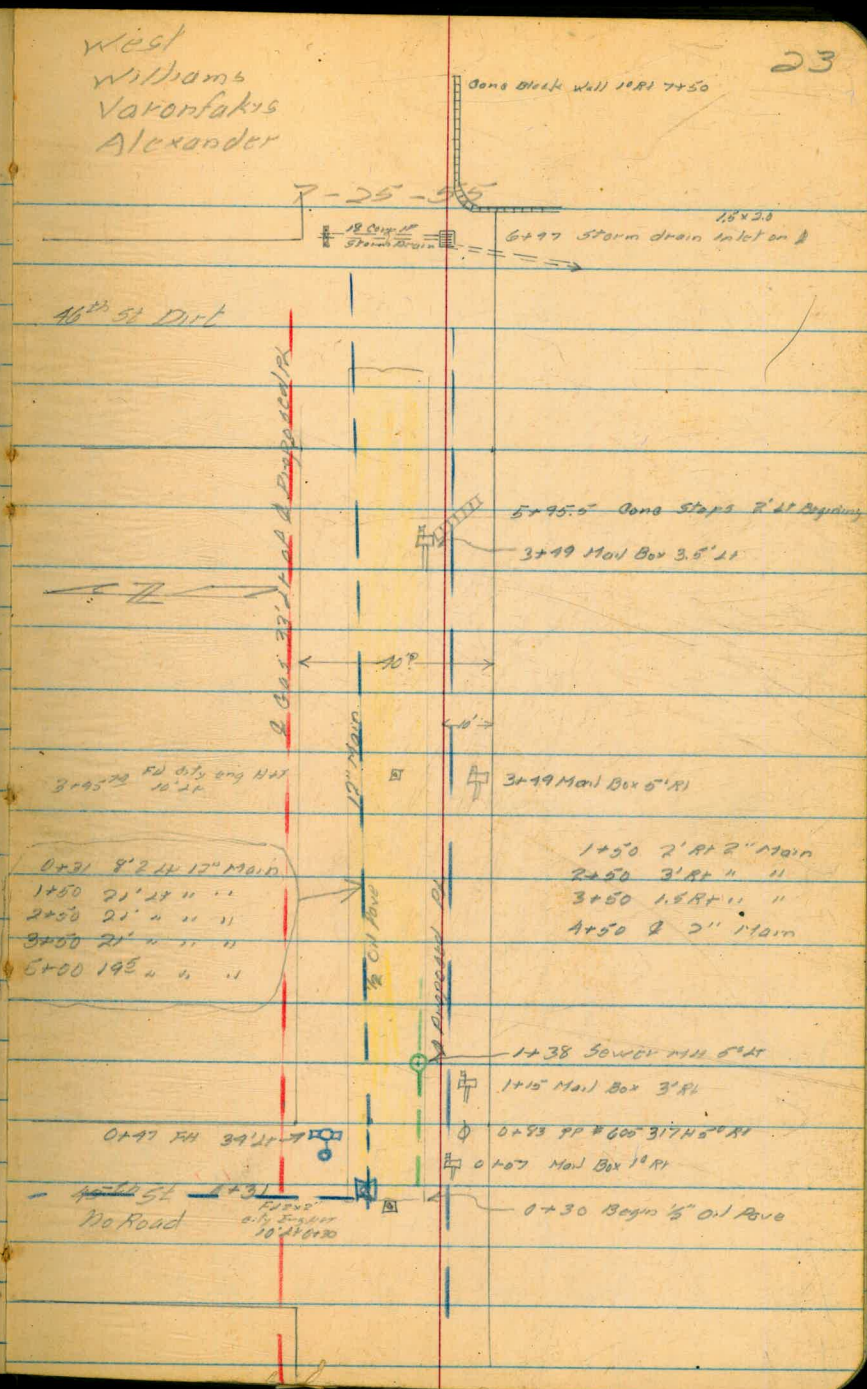 23
West
Williams
Varonfakis
Alexander
7-25-55
Conc Block Wall 1° Rt 7+50
18 Corr
Storm Drain
1.5 x 2.0
6+97 Storm drain Inlet on ℄
46th St Dirt
5+95.5 Conc Steps 2' Lt Begining
3+49 Mail Box 3.5' Lt
℄ Gas 33' Lt of ℄ Proposed PL
40'
10'
12" Main
Fd City Eng H&T
10' Lt
3+49 Mail Box 5' Rt
0+31 8'2 Lt 12" Main
1+50 21' Lt " "
2+50 21' " " "
3+50 21' " " "
5+00 19⁵ " " "
1+50 2' Rt 2" Main
2+50 3' Rt " "
3+50 1.5 Rt " "
4+50 ℄ 2" Main
Oil Pave
℄ Proposed PL
1+38 Sewer MH 5° Lt
1+15 Mail Box 3' Rt
0+47 FH 34' Lt
0+83 PP # 605 317 H 5° Rt
0+07 Mail Box 1° Rt
45th St 0+31
No Road
Fd 2x2
City Eng
10' Lt 0+30
0+30 Begin Oil Pave